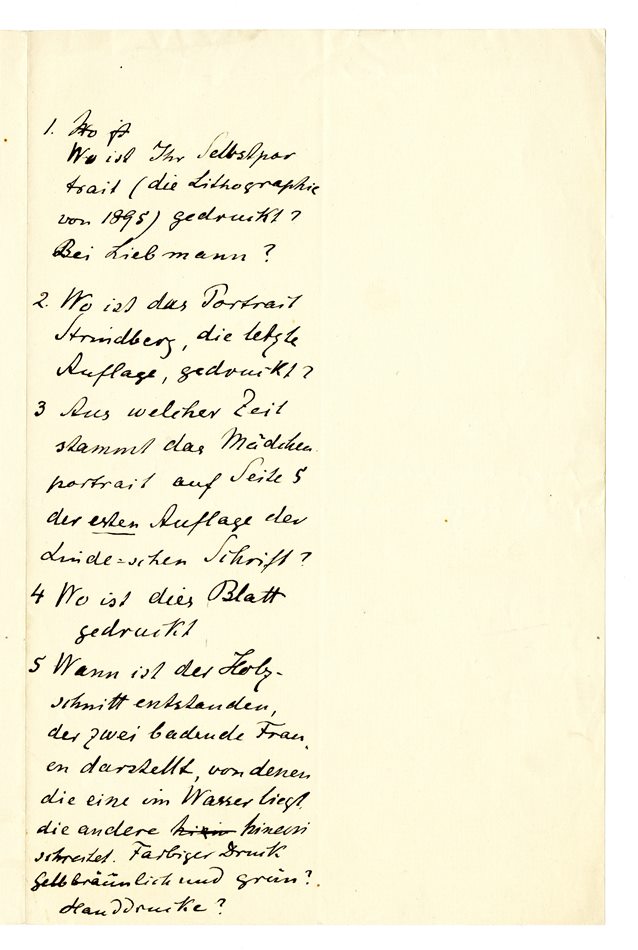 1. Wo ist
Wo ist Ihr Selbstpor
trait (die Lithographie
von 1895) gedruckt?
Bei Liebmann?
2. Wo ist das Portrait
Strindberg, die letzte
Auflage, gedruckt?
3 Aus welcher Zeit
stammt das Mädchen
portrait auf Seite 5
der ersten Auflage der
Linde=schen Schrift?
4 Wo ist dies Blatt
gedruckt
5 Wann ist der Holz-
schnitt entstanden,
der zwei badende Frau
en darstellt, von denen
die eine im Wasser liegt
die andere hinein
schreitet. Farbiger Druck
Gelbbräunlich und grün?
Handdrucke?